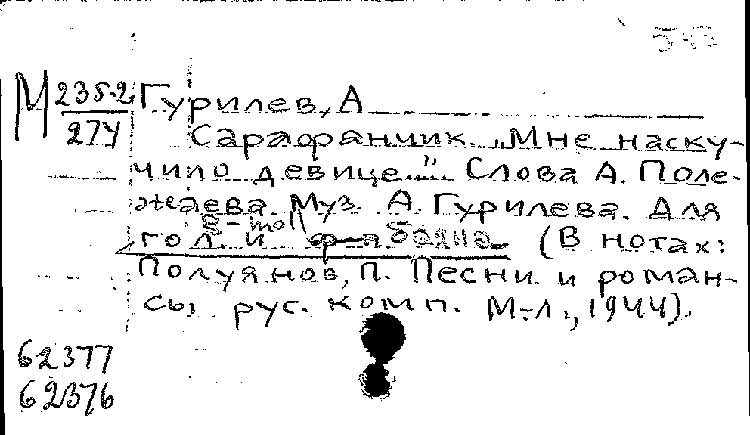 М 235-2/274 Гурилев, А
Сарафанчик. „Мне наску-
чило девице..." Слова А. Поле-
жаева. Муз. А. Гурилева. Для
g-moll
гол. и ф-п баяна (В нотах:
Полуянов, П. Песни и роман-
сы рус. комп. М.-Л., 1944).
62377
62376